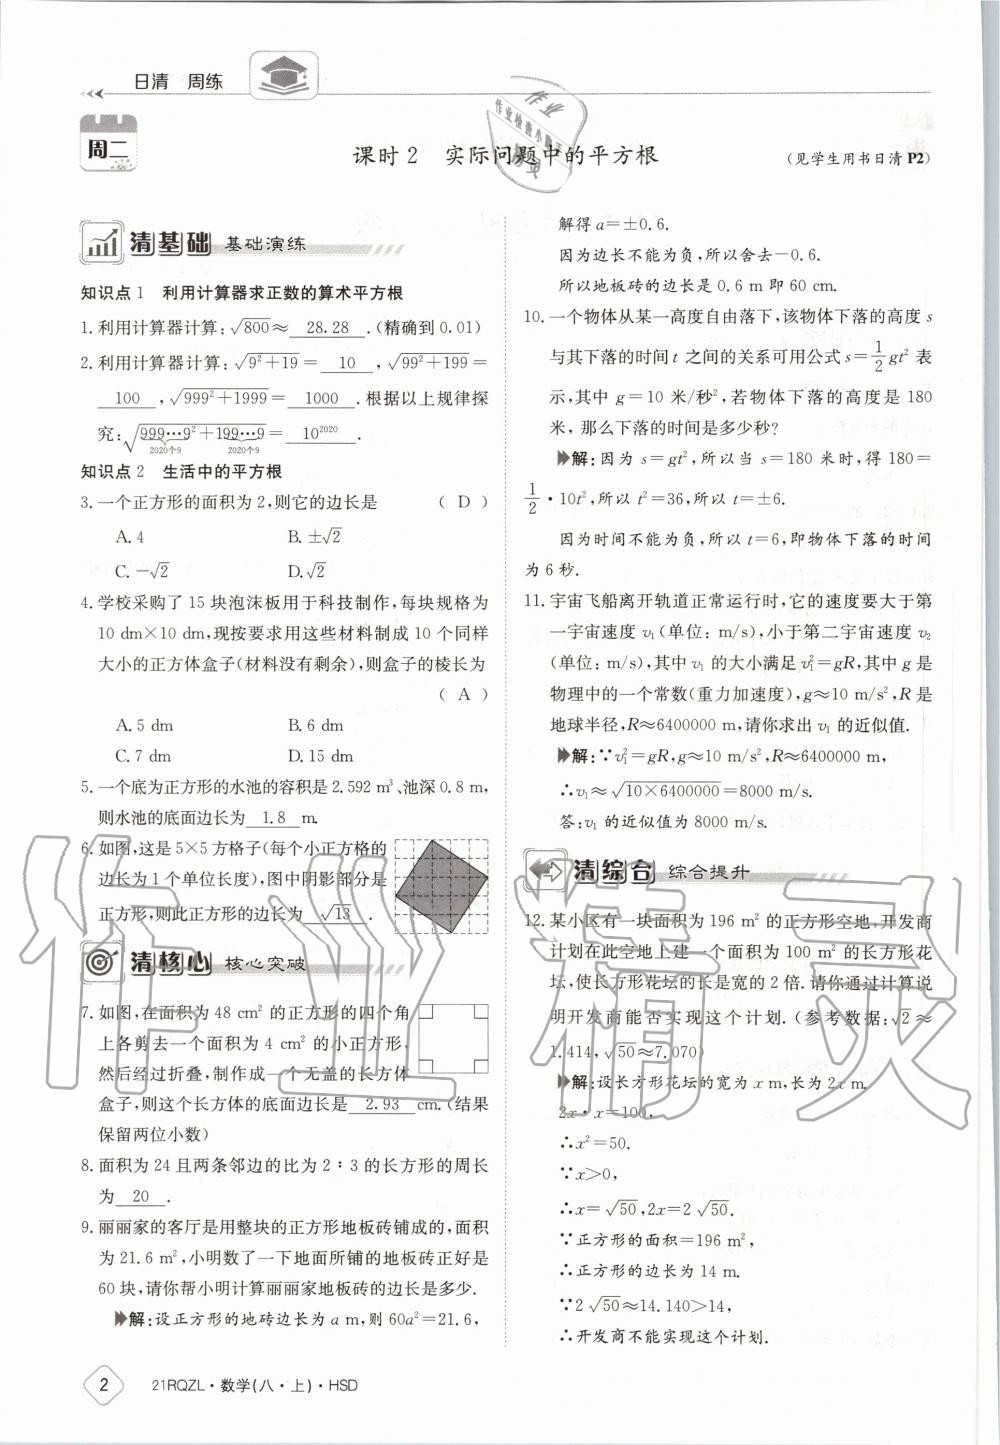 日清 周练
周二
课时2 实际问题中的平方根
(见学生用书日清 P2)
清基础 基础演练
知识点1 利用计算器求正数的算术平方根
1.利用计算器计算:√800≈ 28.28 .(精确到0.01)
2.利用计算器计算:√(9²+19)= 10 ,√(99²+199)=
100 ,√(999²+1999)= 1000 .根据以上规律探
究:√(999…9²+199…9)= 10²⁰²⁰
2020个9 2020个9
知识点2 生活中的平方根
3.一个正方形的面积为2,则它的边长是 ( D )
A.4 B.±√2
C.-√2 D.√2
4.学校采购了15块泡沫板用于科技制作,每块规格为
10 dm×10 dm,现按要求用这些材料制成10个同样
大小的正方体盒子(材料没有剩余),则盒子的棱长为
( A )
A.5 dm B.6 dm
C.7 dm D.15 dm
5.一个底为正方形的水池的容积是2.592 m³、池深0.8 m,
则水池的底面边长为 1.8 m.
6.如图,这是5×5方格子(每个小正方格的
边长为1个单位长度),图中阴影部分是
正方形,则此正方形的边长为 √13 .
清核心 核心突破
7.如图,在面积为48 cm²的正方形的四个角
上各剪去一个面积为4 cm²的小正方形,
然后经过折叠,制作成一个无盖的长方体
盒子,则这个长方体的底面边长是 2.93 cm.(结果
保留两位小数)
8.面积为24且两条邻边的比为2:3的长方形的周长
为 20 .
9.丽丽家的客厅是用整块的正方形地板砖铺成的,面积
为21.6 m²,小明数了一下地面所铺的地板砖正好是
60块,请你帮小明计算丽丽家地板砖的边长是多少.
解:设正方形的地砖边长为a m,则60a²=21.6,
解得a=±0.6.
因为边长不能为负,所以舍去-0.6.
所以地板砖的边长是0.6 m即60 cm.
10.一个物体从某一高度自由落下,该物体下落的高度s
与其下落的时间t之间的关系可用公式s=1/2gt²表
示,其中g=10米/秒²,若物体下落的高度是180
米,那么下落的时间是多少秒?
解:因为s=gt²,所以当s=180米时,得180=
1/2·10t²,所以t²=36,所以t=±6.
因为时间不能为负,所以t=6,即物体下落的时间
为6秒.
11.宇宙飞船离开轨道正常运行时,它的速度要大于第
一宇宙速度v₁(单位:m/s),小于第二宇宙速度v₂
(单位:m/s),其中v₁的大小满足v₁²=gR,其中g是
物理中的一个常数(重力加速度),g≈10 m/s²,R是
地球半径,R≈6400000 m,请你求出v₁的近似值.
解:∵v₁²=gR,g≈10 m/s²,R≈6400000 m,
∴v₁≈√(10×6400000)=8000 m/s.
答:v₁的近似值为8000 m/s.
清综合 综合提升
12.某小区有一块面积为196 m²的正方形空地,开发商
计划在此空地上建一个面积为100 m²的长方形花
坛,使长方形花坛的长是宽的2倍.请你通过计算说
明开发商能否实现这个计划.(参考数据:√2≈
1.414,√50≈7.070)
解:设长方形花坛的宽为x m,长为2x m.
2x·x=100,
∴x²=50.
∵x>0,
∴x=√50,2x=2√50.
∵正方形的面积=196 m²,
∴正方形的边长为14 m.
∵2√50≈14.140>14,
∴开发商不能实现这个计划.
2 21RQZL·数学(八·上)·HSD
作业精灵